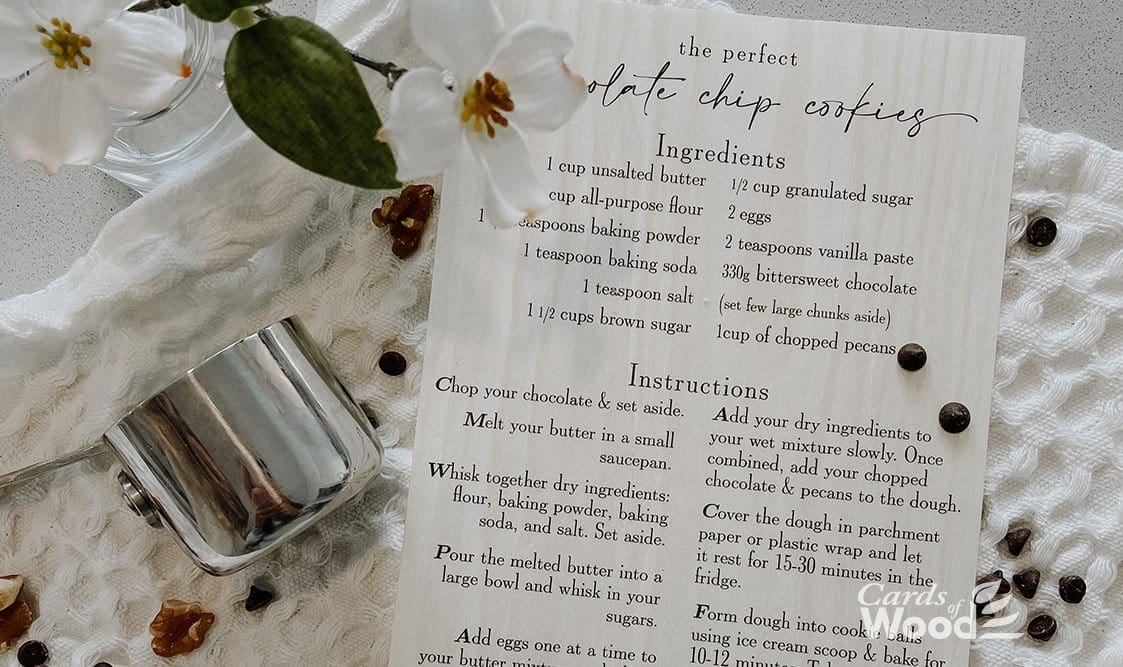 the perfect
olate chip cookies
Ingredients
1 cup unsalted butter
cup all-purpose flour
1 easpoons baking powder
1 teaspoon baking soda
1 teaspoon salt
1 1/2 cups brown sugar
1/2 cup granulated sugar
2 eggs
2 teaspoons vanilla paste
330g bittersweet chocolate
(set few large chunks aside)
1cup of chopped pecans
Instructions
Chop your chocolate & set aside.
Melt your butter in a small
saucepan.
Whisk together dry ingredients:
flour, baking powder, baking
soda, and salt. Set aside.
Pour the melted butter into a
large bowl and whisk in your
sugars.
Add eggs one at a time to
your butter mixture
Add your dry ingredients to
your wet mixture slowly. Once
combined, add your chopped
chocolate & pecans to the dough.
Cover the dough in parchment
paper or plastic wrap and let
it rest for 15-30 minutes in the
fridge.
Form dough into cookie balls
using ice cream scoop & bake for
10-12 minutes.
Cards
of
Wood